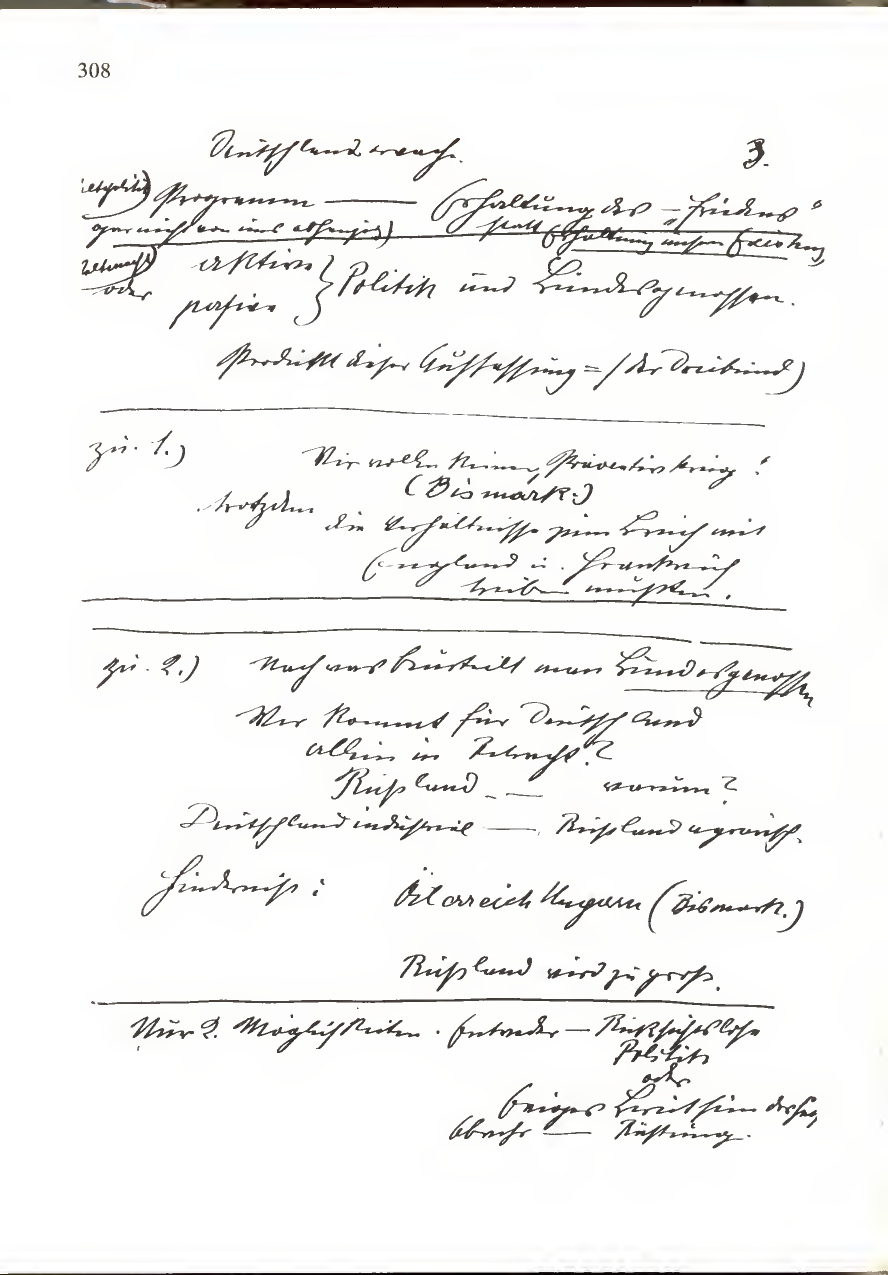 308
Deutschland erwache. 3.
Programm — Erhaltung des – Friedens"
gar nicht von uns abhängig) statt Erhaltung unserer Existenz
oder aktive } Politik und Bundesgenossen.
passive
Produkt dieser Auffassung = / der Dreibund)
zu. 1.) Wir wollen keinen „Präventivkrieg"
(Bismark.)
trotzdem die Verhältnisse zum Bruch mit
England u. Frankreich
treiben mußten.
zu. 2.) Nach was beurteilt man Bundesgenossen
Wer kommt für Deutschland
allein in Betracht?
Rußland – — warum?
Deutschland industriel — Rußland agrarisch.
Hinderniß: Östarreich Ungarn (Bismark.)
Rußland wird zu groß.
Nur 2. Möglichkeiten. Entweder — Rücksichtslose
Politik
oder
Bereitsein
Abwehr — Rüstung.